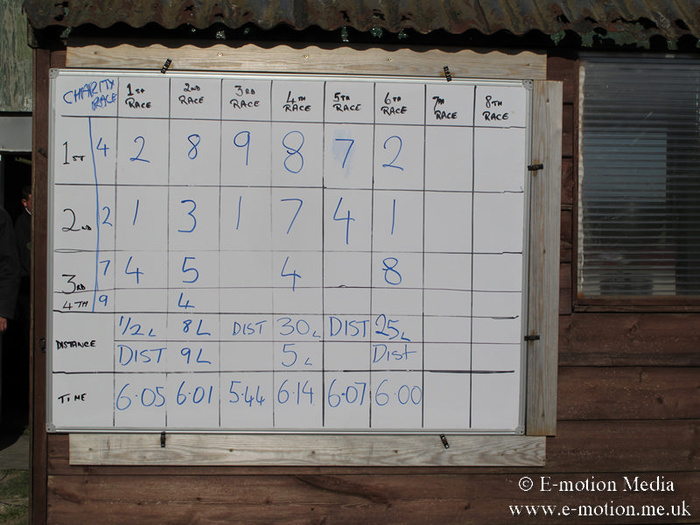 CHARITY RACE 1ST RACE 2ND RACE 3RD RACE 4TH RACE 5TH RACE 6TH RACE 7TH RACE 8TH RACE
1ST 4 2 8 9 8 7 2
2ND 2 1 3 1 7 4 1
3RD 7 4 5 4 8
4TH 9 4
DISTANCE 1/2 L 8 L DIST 30 L DIST 25 L
DIST 9 L 5 L Dist
TIME 6.05 6.01 5.44 6.14 6.07 6.00
© E-motion Media
www.e-motion.me.uk